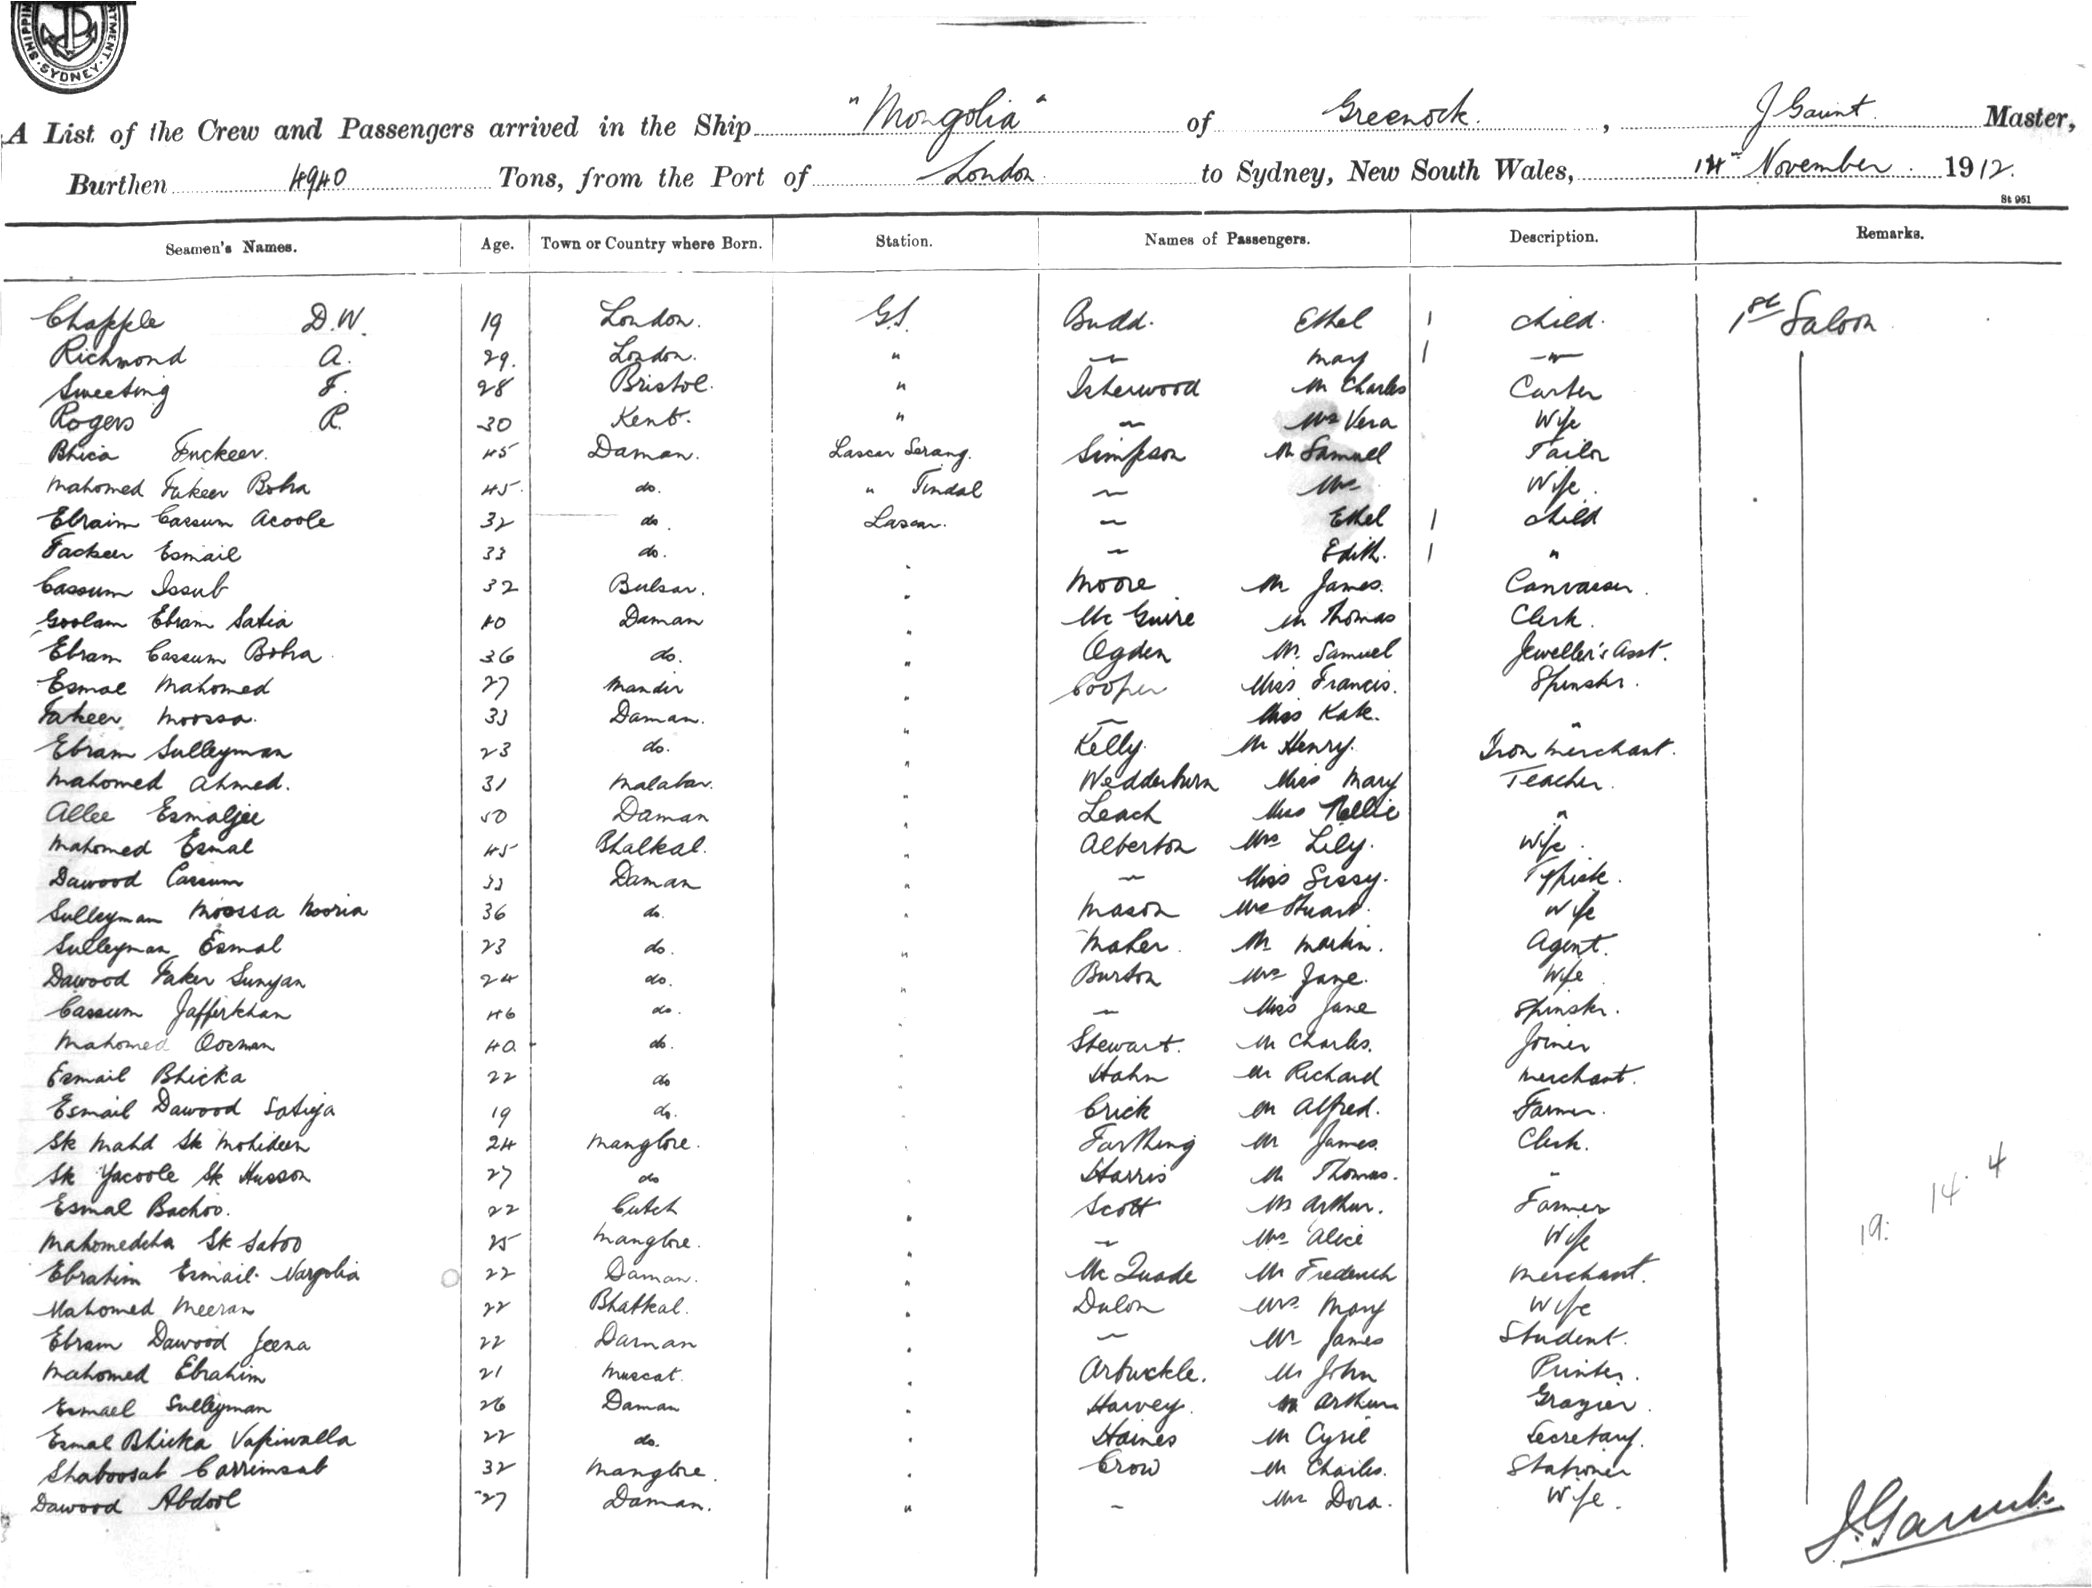 SHIPPING DEPARTMENT. SYDNEY.
A List of the Crew and Passengers arrived in the Ship "Mongolia" of Greenock. , J Gaunt. Master,
Burthen 4940 Tons, from the Port of London. to Sydney, New South Wales, 14th November. 1912.
St 951
Seamen's Names. Age. Town or Country where Born. Station. Names of Passengers. Description. Remarks.
Chapple D.W. 19 London. G.S. Budd. Ethel 1 child. 1st Saloon
Richmond A. 29. London. " — May 1 —"—
Sweeting F. 28 Bristol. " Isherwood Mr Charles Carter
Rogers R. 30 Kent. " — Mrs Vera Wife
Bhica Fuckeer. 45 Daman. Lascar Serang. Simpson Mr Samuel Tailor
Mahomed Fakeer Boha 45. do. " Tindal — Mrs Wife.
Ebraim Cassum Acoole 32 do. Lascar. — Ethel 1 child
Fackeer Esmail 33 do. — Edith. 1 "
Cassum Issub 32 Bulsar. " Moore Mr James. Canvasser.
Goolam Ebram Satia 40 Daman " Mc Guire Mr Thomas Clerk.
Ebram Cassum Boha 36 do. " Ogden Mr. Samuel Jeweller's Asst.
Esmae Mahomed 27 Mandir " Cooper Miss Francis. Spinster.
Fakeer Moossa. 33 Daman. " — Miss Kate. "
Ebram Sulleyman 23 do. " Kelly. Mr Henry. Iron Merchant.
Mahomed Ahmed. 31 Malabar. " Wedderburn Miss Mary Teacher.
Allee Esmaljee 50 Daman " Leach Miss Nellie "
Mahomed Esmal 45 Bhalkal. " Alberton Mrs Lily. Wife.
Dawood Cassum 33 Daman " — Miss Sissy. Typist.
Sulleyman Moossa Nooria 36 do. " Mason Mrs Stuart. Wife
Sulleyman Esmal 23 do. " Maher. Mr Martin. Agent.
Dawood Faker Sunyan 24 do. " Burton Mrs Jane. Wife
Cassum Jafferkhan 46 do. " — Miss Jane Spinster.
Mahomed Oosman 40 do. " Stewart. Mr Charles. Joiner
Esmail Bhicka 22 do " Hahn Mr Richard Merchant.
Esmail Dawood Satiya 19 do. " Crick Mr Alfred. Farmer.
Sk Mahd Sk Mohideen 24 Manglore. " Farthing Mr James. Clerk.
Sk Yacoole Sk Husson 27 do " Harris Mr Thomas. "
Esmal Bachoo. 22 Cutch " Scott Mr Arthur. Farmer
Mahomedcha Sk Saboo 25 Manglore. " — Mrs Alice Wife
Ebrahim Esmail Nargolia 22 Daman. " Mc Quade Mr Frederick Merchant.
Mahomed Meeran 22 Bhatkal. " Dulon Mrs Mary Wife
Ebram Dawood Jeena 22 Daman " — Mr James Student.
Mahomed Ebrahim 21 Muscat. " Arbuckle. Mr John Printer.
Esmael Sulleyman 26 Daman " Harvey. Mr Arthur Grazier.
Esmal Bhicka Vapiwalla 22 do. " Haines Mr Cyril Secretary.
Shaboosab Carrimsab 32 Manglore. " Crow Mr Charles. Stationer
Dawood Abdool 27 Daman. " — Mrs Dora. Wife.
19. 14. 4
J. Gaunt